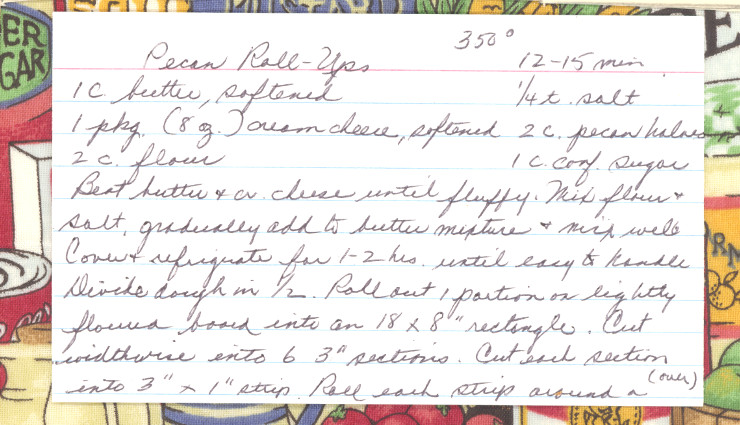 350°
Pecan Roll-Ups 12-15 min
1 c. butter, softened 1/4 t. salt
1 pkg. (8 oz.) cream cheese, softened 2 c. pecan halves
2 c. flour 1 c. conf. sugar
Beat butter + cr. cheese until fluffy. Mix flour +
salt, gradually add to butter mixture + mix well
Cover + refrigerate for 1-2 hrs. until easy to handle
Divide dough in 1/2. Roll out 1 portion on lightly
floured board into an 18 x 8" rectangle. Cut
widthwise into 6 3" sections. Cut each section
into 3" x 1" strip. Roll each strip around a
(over)
PER
GAR
E
RN